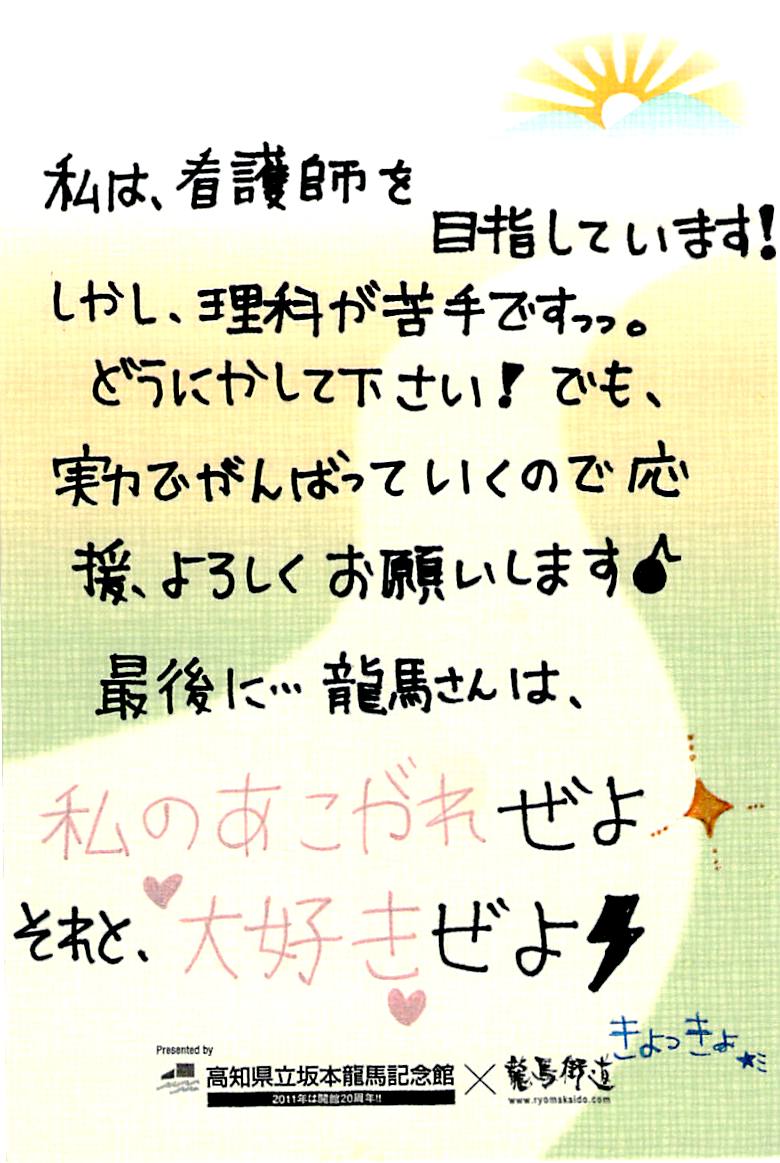 私は、看護師を
目指しています!
しかし、理科が苦手ですっっ。
どうにかして下さい! でも、
実力でがんばっていくので応
援、よろしくお願いします
最後に… 龍馬さんは、
私のあこがれぜよ
それと、大好きぜよ
きよっきょ
Presented by
高知県立坂本龍馬記念館 × 龍馬街道
2011年は開館20周年!!
www.ryomakaido.com